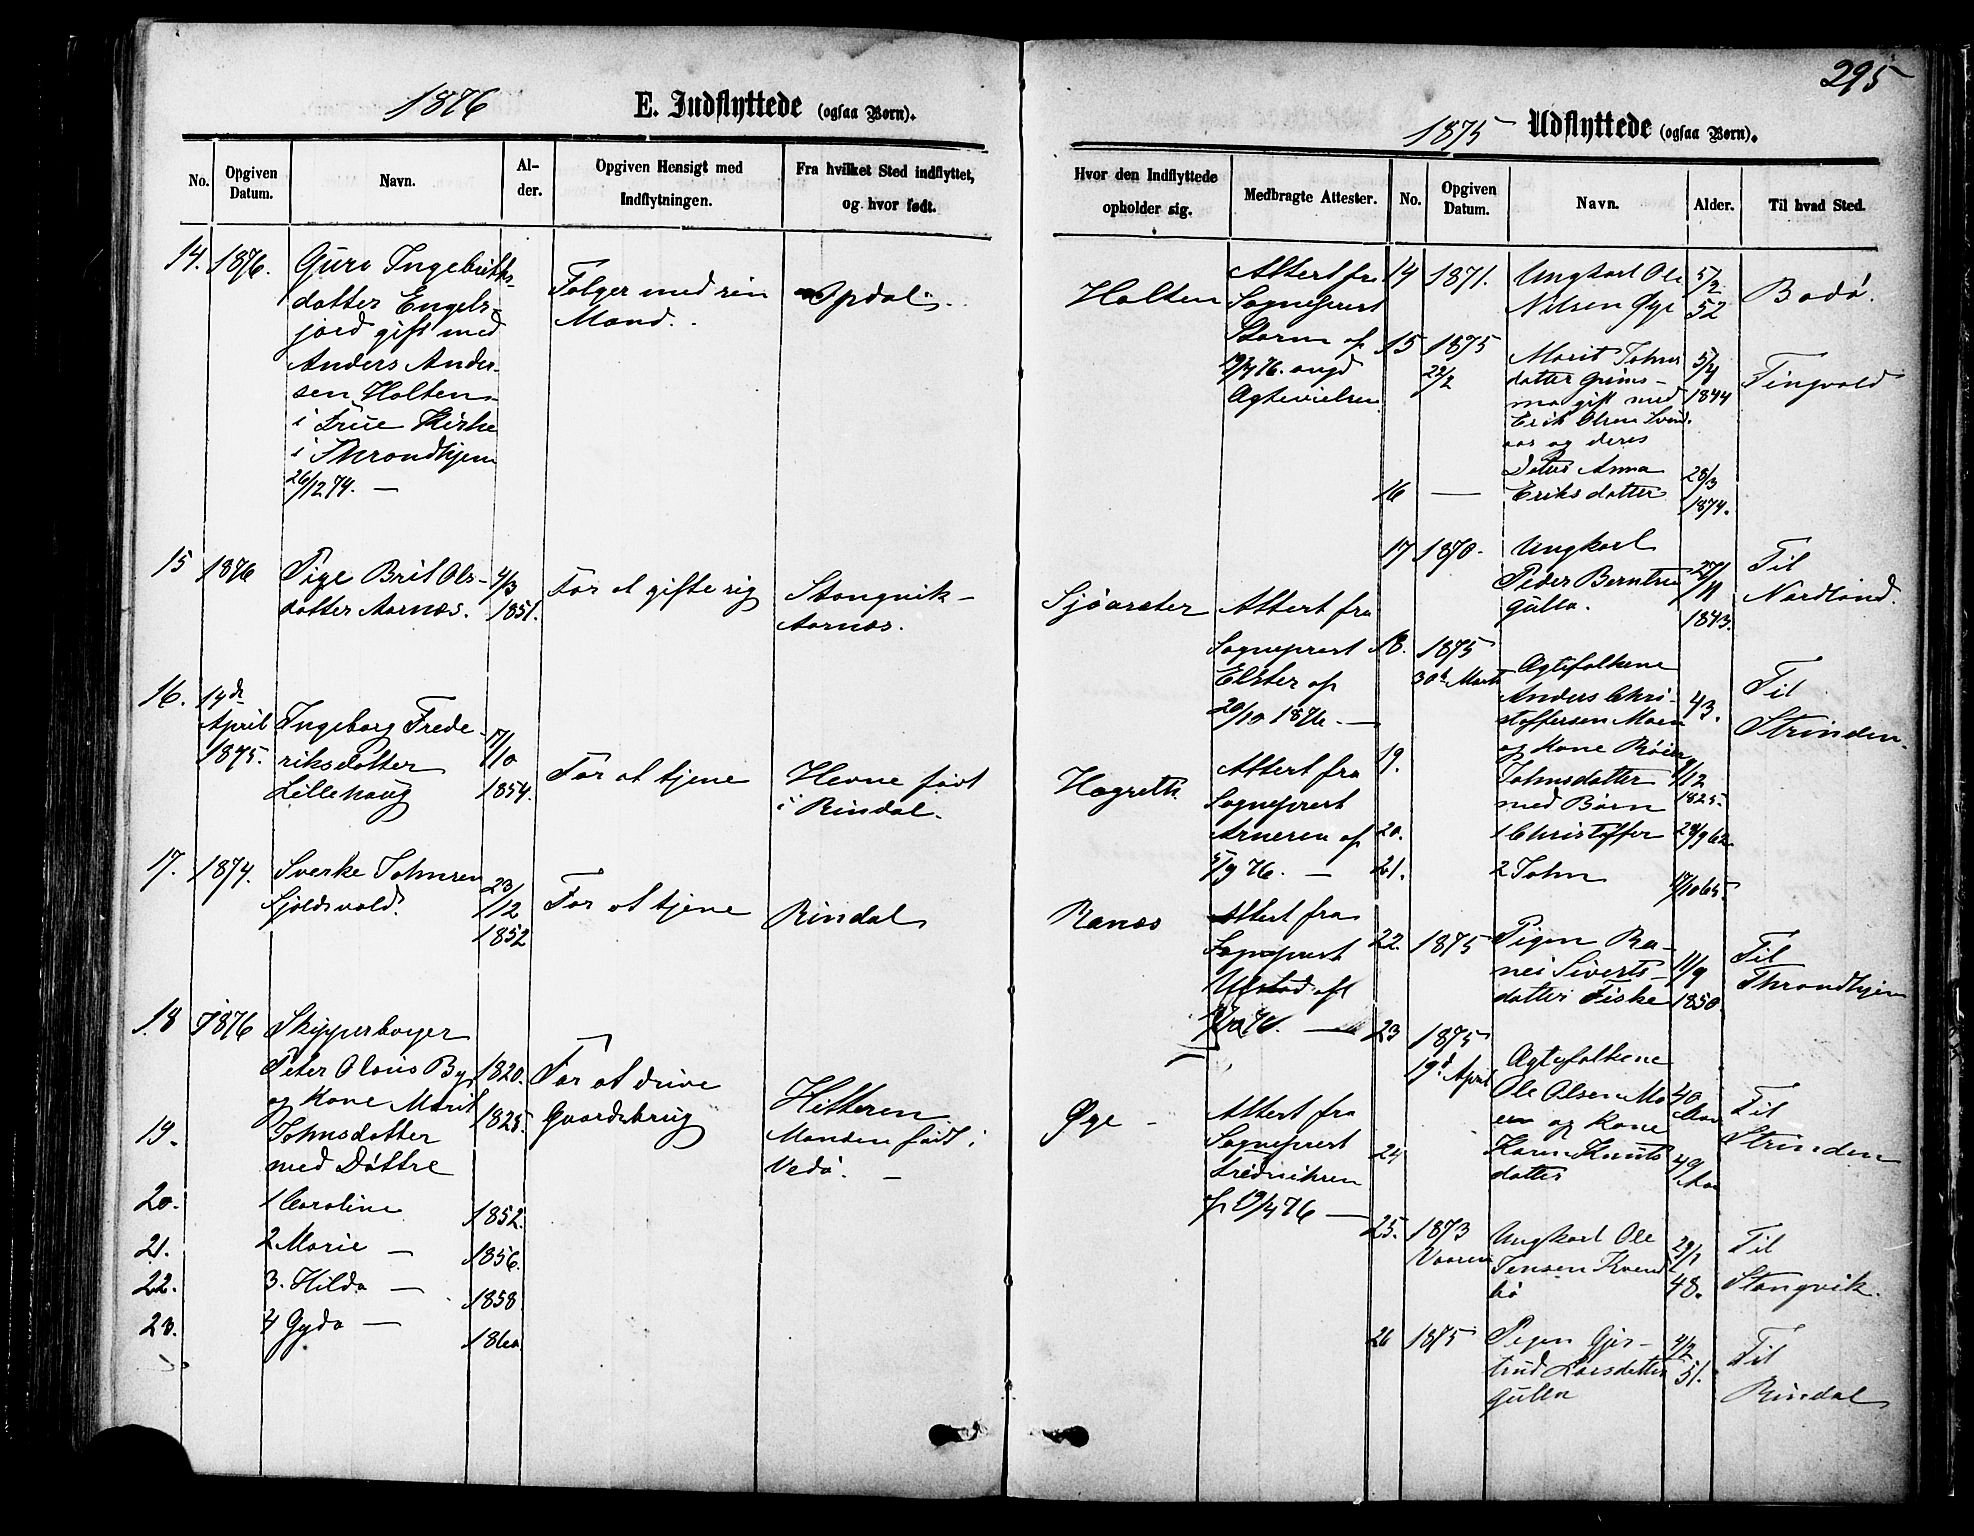 295
1876 E. Indflyttede (ogsaa Børn).
No.
Opgiven Datum.
Navn.
Al-
der.
Opgiven Hensigt med
Indflytningen.
Fra hvilket Sted indflyttet,
og hvor født.
Hvor den Indflyttede
opholder sig.
Medbragte Attester.
14. 1876.
Guro Ingebrigts-
datter Engels-
jord gift med
Anders Ander-
sen Holten
i Frue Kirke
i Throndhjem
26/12 74. —
Følger med sin
Mand.
Opdal.
Holten
Attest fra
Sogneprest
Storm af
angd
Ægtevielsen
15 1876
Pige Brit Ols-
datter Aarnæs.
4/3
1851.
For at gifte sig
Stangvik-
Aarnæs.
Sjøaseter
Attest fra
Sogneprest
Elster af
20/10 1876. —
16. 14de
April
1875.
Ingeborg Frede-
riksdatter
Lillehaug
17/10
1854.
For at tjene
Hevne født
i Rindal.
Hagreth
Attest fra
Sogneprest
Arnesen af
5/9 76. —
17. 1874.
Sverke Johnsen
Fjeldsvold.
23/12
1852
For at tjene
Rindal
Ranæs
Attest fra
Sogneprest
Ulstad af
18 1876
Skipperborger
Peter Olaus By
og Kone Marit
19.
Johnsdatter
med Døttre
1820.
1825.
For at drive
Gaardsbrug
Hitteren
Manden født i
Vedø. —
Øye -
Attest fra
Sogneprest
Fredriksen
af 19/4 76 —
20. 1 Caroline 1852.
21. 2 Marie — 1856.
22. 3. Hilda — 1858
23. 4 Gyda — 1860
1875 Udflyttede (ogsaa Børn).
No.
Opgiven Datum.
Navn.
Alder.
Til hvad Sted.
14 1871.
Ungkarl Ole
Nilsen Øye
5/2
52
Bodø.
15 1875
22/2
Marit Johns
datter Grims-
mo gift med
Erik Olsen Svind-
aas og deres
5/4
1844
Tingvold
16 —
Datter Anna
Eriksdatter
28/3
1874.
17 1870.
Ungkarl
Peder Berntsen
Gulla.
27/11
1843.
Til
Nordland.
18. 1875
30d Marts
Ægtefolkene
Anders Chri-
stoffersen Moen
43.
Til
Strinden.
19.
og Kone
Johnsdatter
med Børn
1825.
20.
1 Christoffer 28/9 62
21.
2 John 17/10 65.
22. 1875
Pigen Ra-
nei Siverts-
datter Fiske
11/9
1850.
Til
Throndhjem
23 1875
19d April
Ægtefolkene
Ole Olsen Mo
en og Kone
40
Aar
Til
Strinden
24
Karen Knuts
datter
49
Aar
25. 1873
Vaaren
Ungkarl Ole
Jensen Kvend
bø
29/1
48.
Til
Stangvik.
26 1875
Pigen Gjer-
trud Larsdatter
Gulla
4/2
51.
Til
Rindal